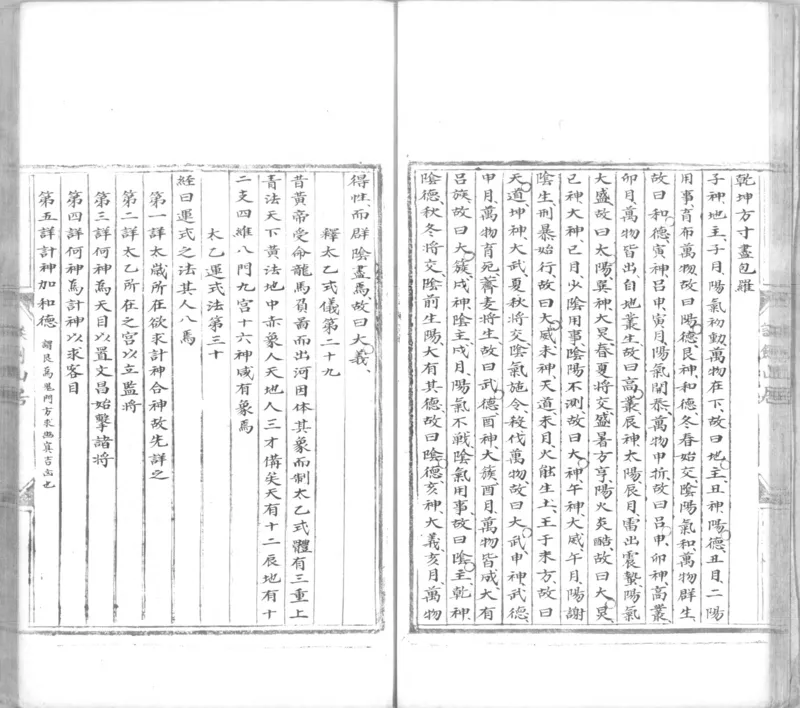 乾坤方寸盡包羅
子神地主、子月、陽氣初動、萬物在下、故曰地主、丑神陽德、丑月、二陽
用事、育布萬物、故曰陽德、艮神、和德、冬春始交、陰陽氣和、萬物群生、
故曰和德、寅神呂申、寅月、陽氣開泰、萬物申拆、故曰呂申、卯神、高叢
卯月、萬物皆出、自地叢生、故曰高叢、辰神太陽、辰月、雷出震蟄、陽氣
大盛、故曰太陽、巽神大炅、春夏將交、盛暑方亨、陽火炎酷、故曰大炅
巳神大神、巳月、少陰用事、陰陽不測、故曰大神、午神大威、午月、陽謝
陰生、刑暴始行、故曰大威、未神天道、未月、火能生土、王于未方、故曰
天道、坤神、大武、夏秋將交、陰氣施令、殺伐萬物、故曰大武、申神武德、
申月、萬物育死、薺麦將生、故曰武德、酉神、大簇、酉月、萬物皆成、大有
呂簇、故曰大簇、戌神陰主、戌月、陽氣不戰、陰氣用事、故曰陰主、乾神
陰德、秋冬將交、陰前生陽、大有其德、故曰陰德、亥神、大義、亥月、萬物
得性、而群陰盡焉、故曰大義、
釋太乙式儀第二十九
昔黃帝受命龍馬負啚而出河因体其象而制太乙式體有三重上
青法天下黃法地中赤象人天地人三才備矣天有十二辰地有十
二支四維八門九宮十六神咸有象焉
太乙運式法第三十
經曰運式之法其人八焉
第一詳太歲所在欲求計神合神故先詳之
第二詳太乙所在之宮以立監將
第三詳何神爲天目以置文昌始擊諸將
第四詳何神爲計神以求客目
第五詳計神加和德 謂艮爲鬼門方求幽真吉凶也